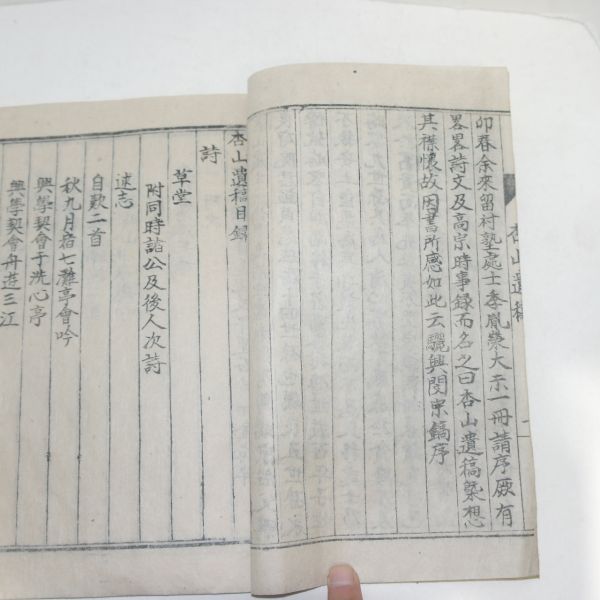 卯春余來留村塾處士李胤榮大示一冊請序厥有
畧畧詩文及高宗時事録而名之曰杏山遺稿槩想
其襟懷故因書所感如此云驪興閔宗鎬序
杏山遺稿
杏山遺稿目録
詩
草堂
附同時諸公及後人次詩
述志
自歎二首
秋九月若七灘亭會吟
興學契會于洗心亭
興學契會舟遊三江